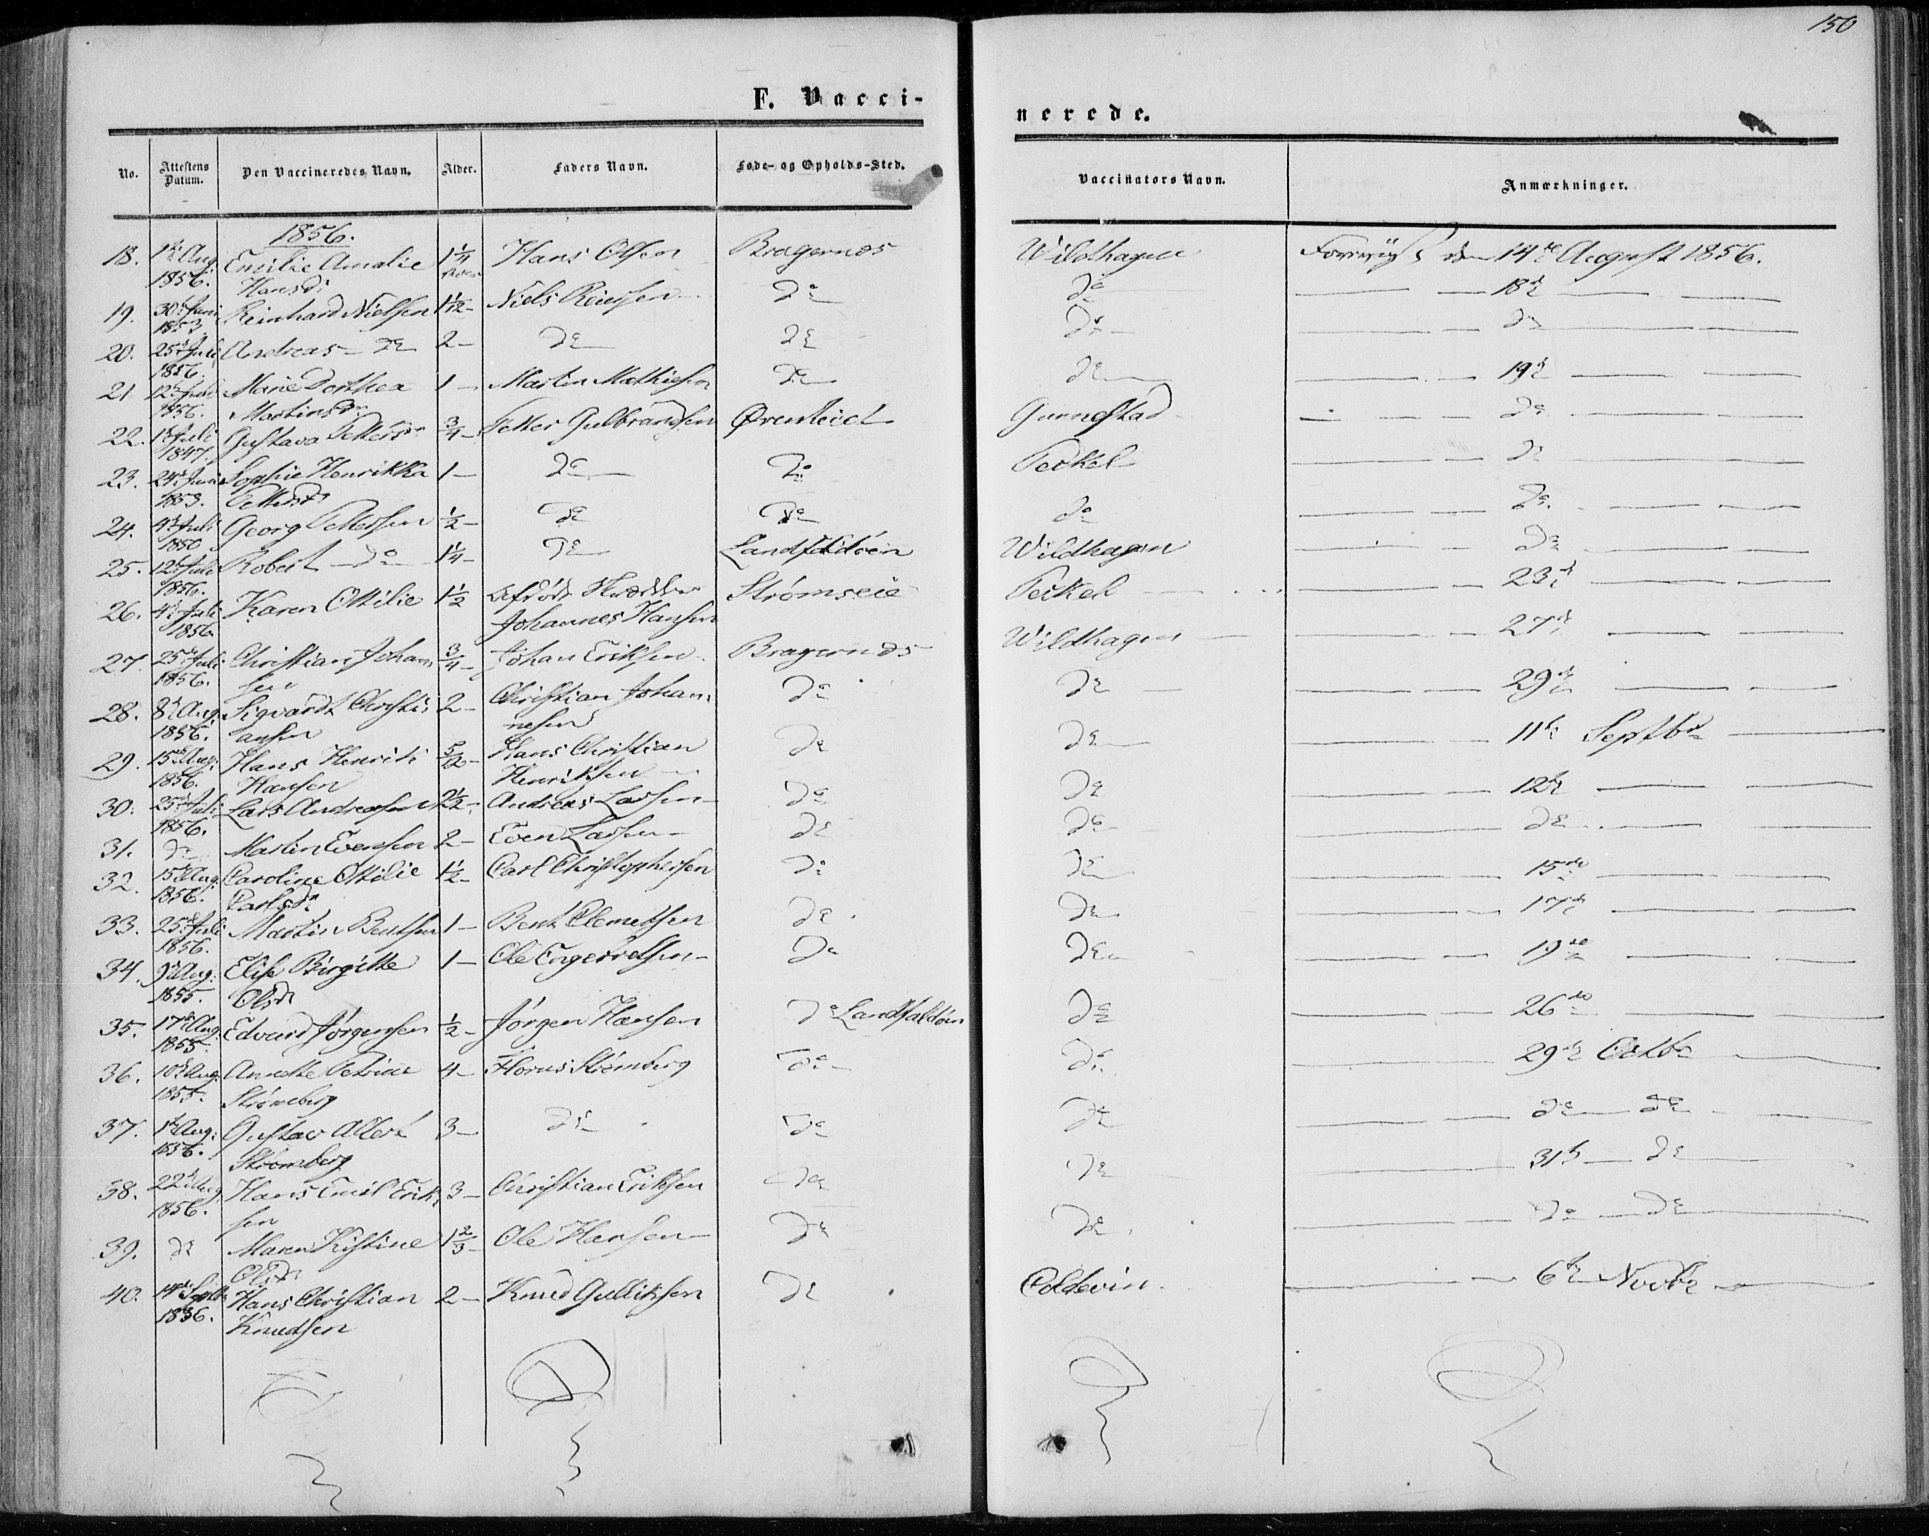 150
F. Vacci-
nerede.
No. Attestens Datum. Den Vaccineredes Navn. Alder. Faders Navn. Føde- og Opholds-Sted. Vaccinators Navn. Anmærkninger.
1856.
18. 1ste Aug. Emilie Amalie 1 1/4 Hans Olsen Bragernæs Wildhagen den 14de August 1856.
1856. Hansdr
19. 30te Juni Reinhard Nielsen 1 1/2 – Niels Reiersen do do — 18de —
1853
20. 25de Juli Andreas – do 2 – do do do — do —
1856.
21 12te Juli Marie Dorthea 1 – Martin Mathiesen do do — 19de —
1856. Martinsdr
22. 1ste Juli Gustava Pettersdr 3/4 – Petter Gulbrandsen Ørenleiet Gunnestad — do —
1847.
23. 24de Juni Sophie Henrikka 1 – do do Peckel — do —
1853. Pettersdr
24. 4de Juli Georg Pettersen 1/2 – do do do — do —
1850
25. 12te Juli Robert – do 1 1/4 – do Landfaldøen Wildhagen — do —
1856.
26. 4de Juli Karen Ottilie 1 1/2 Strømsøe Peckel — 23de —
1856. Johannes Hansen
27. 25de Juli Christian Johan- 3/4 – Johan Eriksen Bragernæs Wildhagen — 27de —
1856. sen
28. 8de Aug. Sigvardt Christi- 2 – Christian Johan- do do — 29de —
1856. ansen nesen
29. 15de Aug. Hans Henrik 5/12 – Hans Christian do do — 11te Septbr —
1856. Hansen Henriksen
30. 25de Juli Lars Andreasen 2 1/2 – Andreas Larsen – do do — 12te —
1856.
31. do Martin Evensen 2 – Even Larsen – do do — do —
32. 15de Aug. Caroline Ottilie 1 1/2 – Carl Christophersen do do — 15de —
1856. Carlsdr
33. 25de Juli Martin Bentsen 1 – Bent Clemetsen do do — 17de —
1856.
34. 9de Aug. Elise Birgitte 1 – Ole Engebretsen – do do — 19de —
1855. Olsdr
35. 17de Aug. Edvard Jørgensen 1/2 – Jørgen Hansen do Landfaldøen do — 26de —
1855.
36. 10de Aug. Anette Petrine 4 – Strømberg do do — 29de Octbr
1855. Strømberg
37. 1ste Aug. Gustav Albert 3 – do do do — do — do
1856. Strømberg
38. 22de Aug. Hans Emil Erik- 3 – Christian Eriksen do do — 31te — do
1856. sen
39. do Maren Kristine 1 2/3 – Ole Hansen – do do — do — do
Olsdr
40. 14de Septbr Hans Christian 2 – Knud Gulliksen do Coldevin. — 6te Novbr —
1856. Knudsen